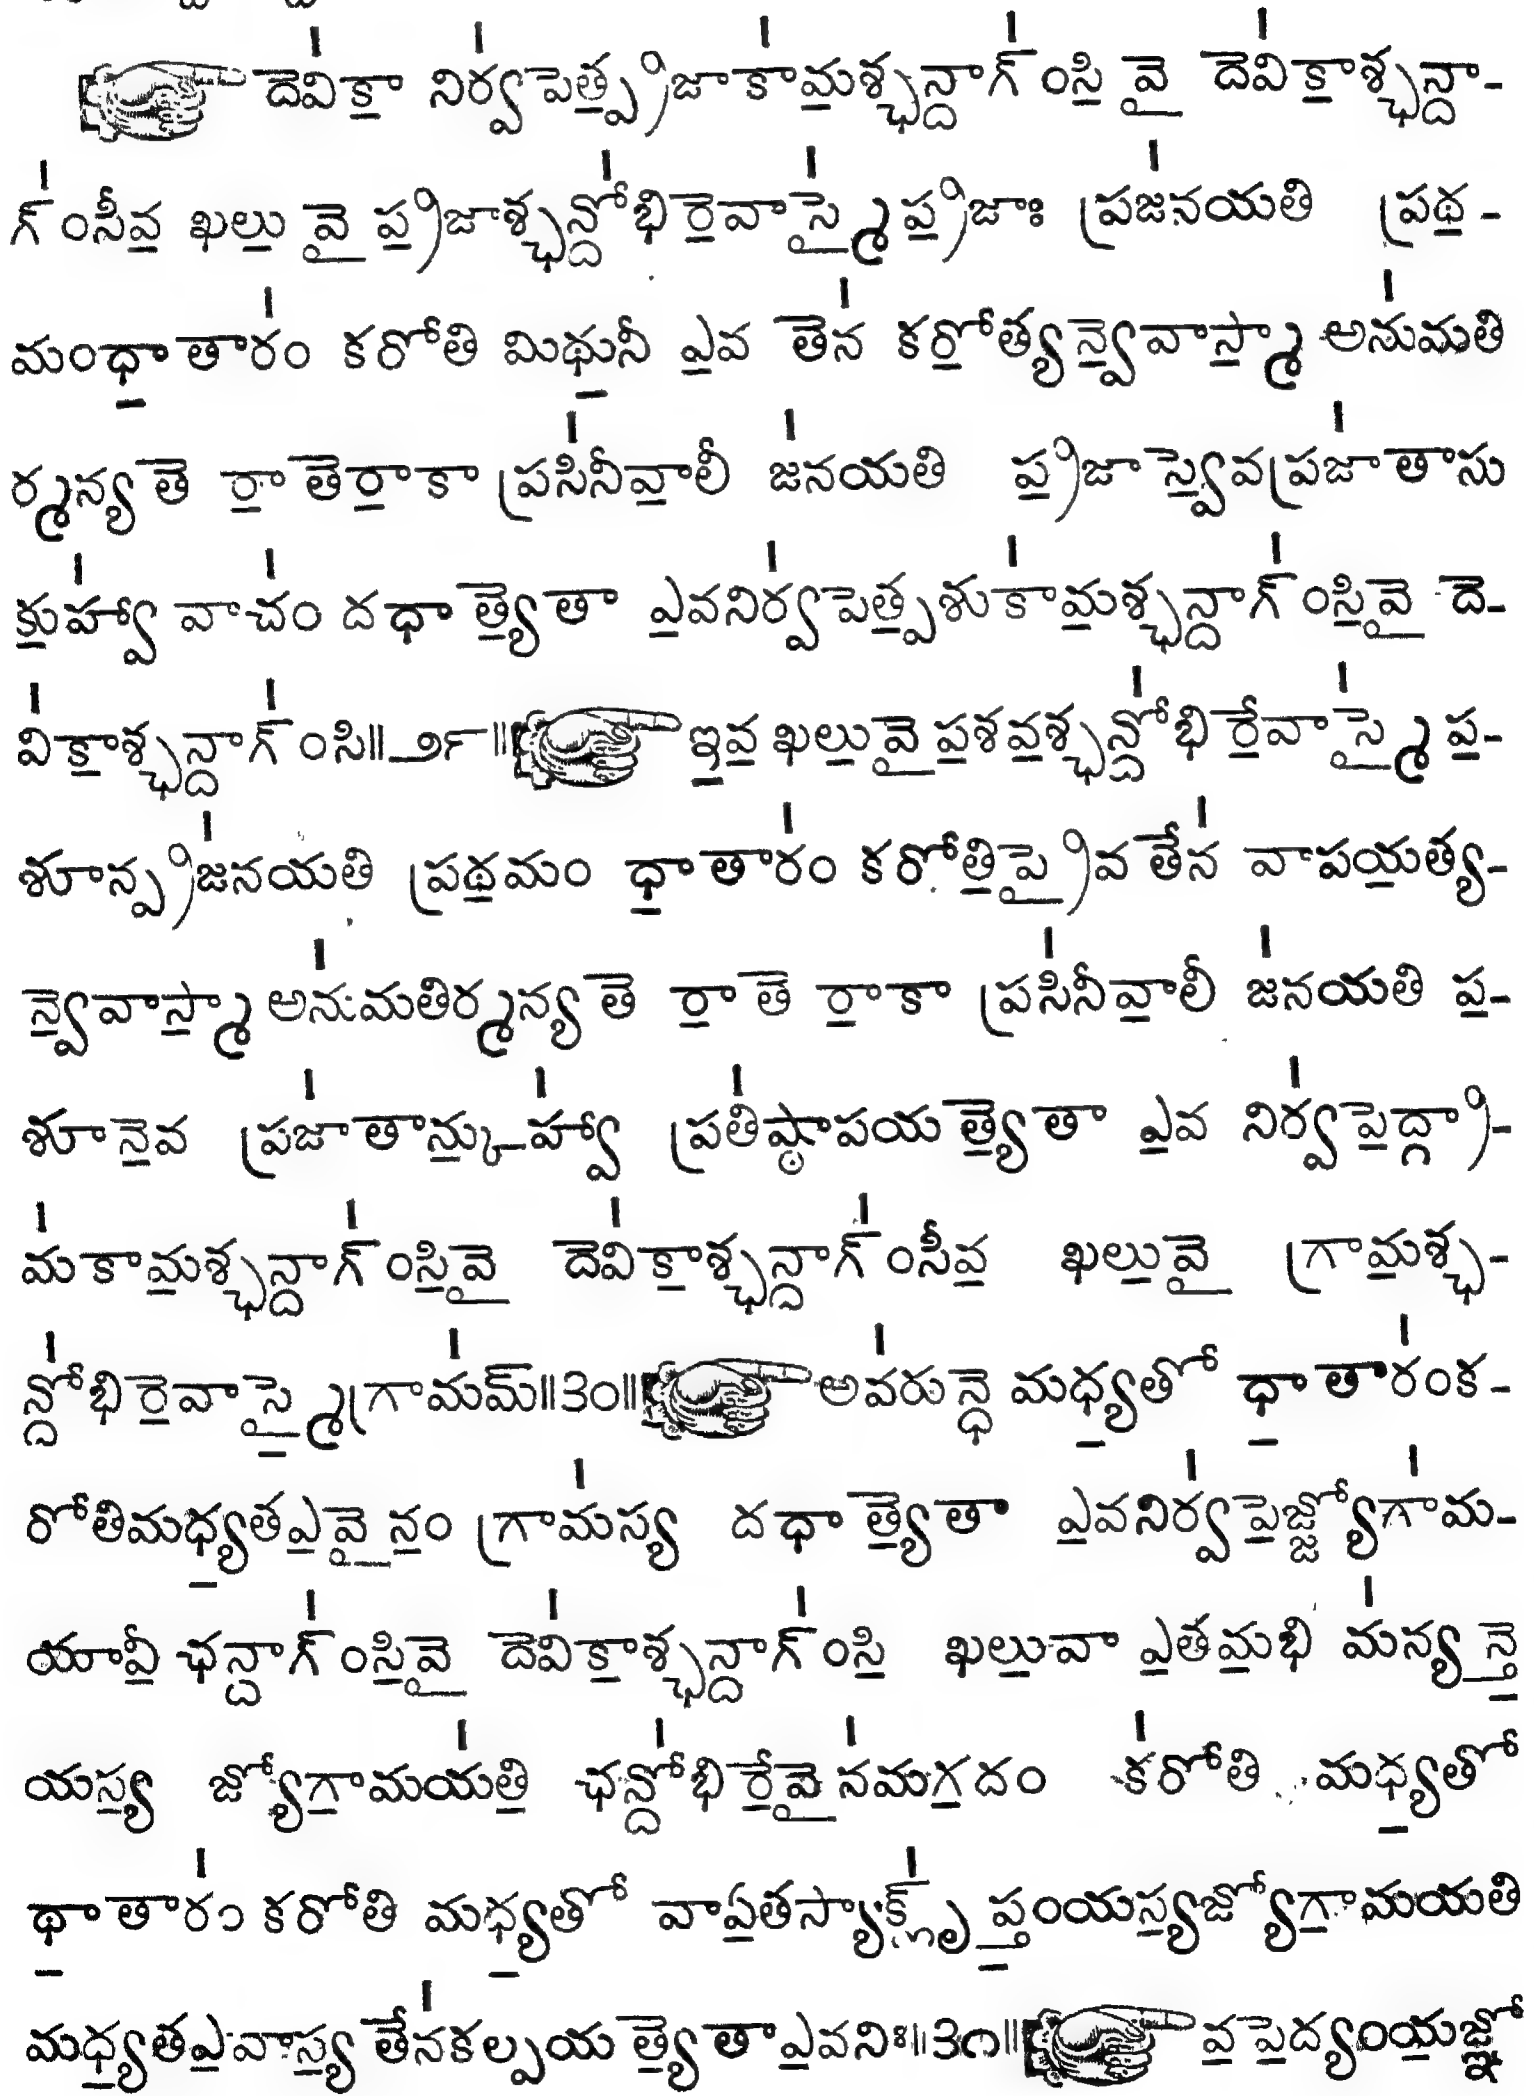 ☞ దెవి॑కా నిర్వ॑పెత్ప్ర॒జాకా॑మశ్ఛ॒న్దాగ్॑ంసి॒ వై దెవి॑కా॒శ్ఛన్దా-
గ్॑ంసీవ॒ ఖలు॒ వై ప్ర॒జాశ్ఛన్దో॑భిరె॒వాస్మై॑ ప్ర॒జాః ప్రజ॑నయతి ప్రథ॒-
మంధా॒తారం॑ కరోతి మిథు॒నీ ఎ॒వ తెన॑ కరో॒త్యన్వె॒వాస్మా॒ అను॑మతి
ర్మన్యతె రా॒తెరా॒కా ప్రసి॑నీవా॒లీ జ॑నయతి ప్ర॒జాస్వె॒వప్రజా॑తాసు
కు॒హ్వా॑ వాచం॑ దధాత్యె॒తా ఎ॒వనిర్వ॑పెత్ప॒శుకా॑మ॒శ్ఛన్దాగ్॑ంసి॒వై దె-
వి॑కా॒శ్ఛన్దాగ్॑ంసి॥౨౯॥☞ఇ॒వ॒ ఖలు॒వై ప॒శవ॒శ్ఛన్దో॑భిరే॒వాస్మై॑ ప॒-
శూన్ప్రజ॑నయతి ప్రథ॒మం ధా॒తారం॑ కరోతి॒ప్రైవ తేన॑ వాపయ॒త్య-
న్వె॒వాస్మా॒ అను॑మతిర్మన్యతె రా॒తె రా॒కా ప్రసి॑నీవా॒లీ జ॑నయతి ప॒-
శూనె॒వ ప్రజా॑తాన్కు॒హ్వా॑ ప్రతి॑ష్ఠాపయత్యె॒తా ఎ॒వ నిర్వ॑పె॒ద్గ్రా-
మ॑కామ॒శ్ఛన్దాగ్॑ంసి॒వై దెవి॑కా॒శ్ఛన్దాగ్॑ంసీవ॒ ఖలు॒వై గ్రామ॒శ్ఛ-
న్దో॑భిరె॒వాస్మై॒గ్రామ॑మ్॥౩౦॥☞అవ॑రున్ధె మధ్య॒తో ధా॒తారం॑క-
రోతిమధ్య॒తఎ॒వైనం॒ గ్రామ॑స్య దధాత్యె॒తా ఎ॒వనిర్వ॑పె॒జ్జ్యోగా॑మ-
యావీ॒ ఛన్దాగ్॑ంసి॒వై దెవి॑కా॒శ్ఛన్దాగ్॑ంసి॒ ఖలు॒వా ఎ॒తమ॒భి మ॑న్యన్తె॒
యస్య॒ జ్యోగా॒మయ॑తి॒ ఛన్దో॑భిరే॒వైన॑మగ॒దం క॑రోతి మధ్య॒తో
థా॒తారం॑ కరోతి మధ్య॒తో వాఏ॒తస్యాక్లృ॑ ప్తం॒యస్య॒జ్యోగా॒మయతి
మధ్య॒తఎ॒వాస్య॒ తేన॑కల్పయత్యె॒తాఎ॒వనిః॥౩౧॥☞వ॒పె॒ద్యంయ॒జ్ఞో